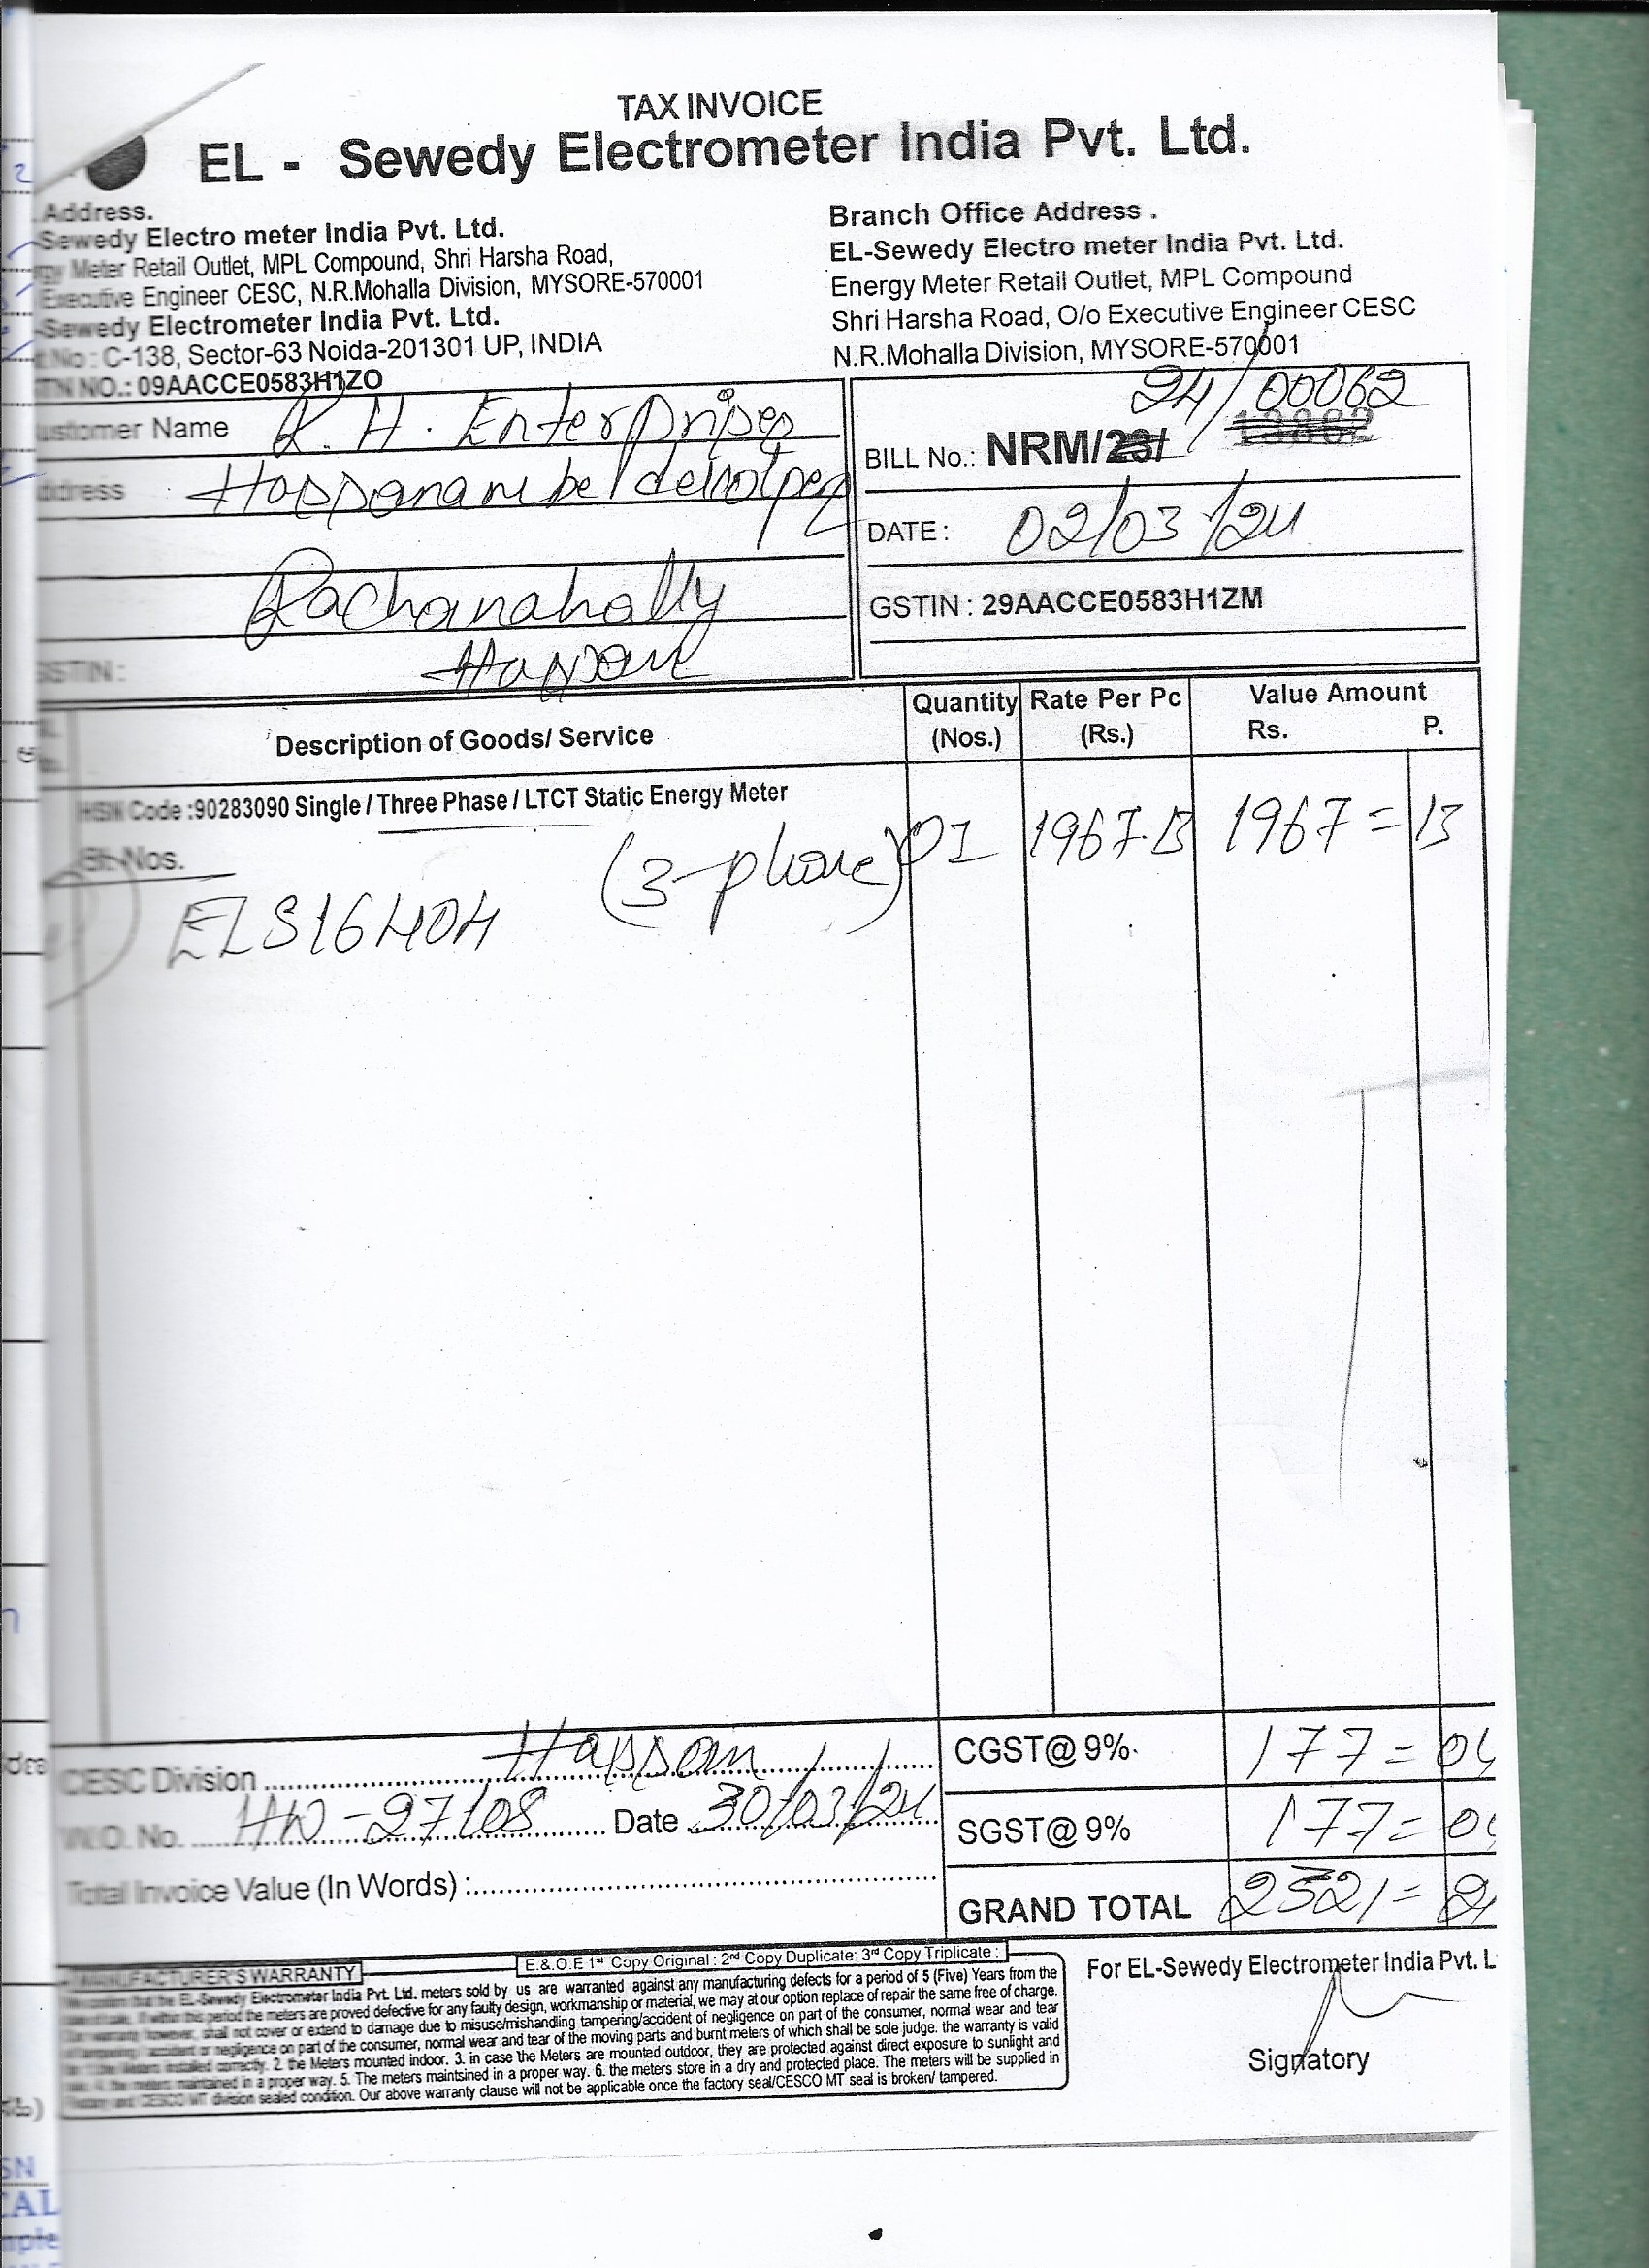 TAX INVOICE
EL - Sewedy Electrometer India Pvt. Ltd.
Address.
Sewedy Electro meter India Pvt. Ltd.
Meter Retail Outlet, MPL Compound, Shri Harsha Road,
Executive Engineer CESC, N.R.Mohalla Division, MYSORE-570001
-Sewedy Electrometer India Pvt. Ltd.
No : C-138, Sector-63 Noida-201301 UP, INDIA
TN NO.: 09AACCE0583H1ZO
Branch Office Address .
EL-Sewedy Electro meter India Pvt. Ltd.
Energy Meter Retail Outlet, MPL Compound
Shri Harsha Road, O/o Executive Engineer CESC
N.R.Mohalla Division, MYSORE-570001
ustomer Name R. H. Enterprises
ddress
Rachanahally
GSTIN : Hassan
24/00062
BILL No.: NRM/23/ 13862
DATE : 02/03/24
GSTIN : 29AACCE0583H1ZM
Description of Goods/ Service Quantity (Nos.) Rate Per Pc (Rs.) Value Amount Rs. P.
HSN Code :90283090 Single / Three Phase / LTCT Static Energy Meter
Nos. (3-phase) 01 1967.13 1967=13
ELS16404
CESC Division Hassan
W.O. No. HW-97108 Date 30/03/24
Total Invoice Value (In Words) :
CGST@ 9%. 177=04
SGST@ 9% 177=0
GRAND TOTAL 2321=2
E.& .O.E 1st Copy Original : 2nd Copy Duplicate: 3rd Copy Triplicate :
MANUFACTURER'S WARRANTY
EL-Sewedy Electrometer India Pvt. Ltd. meters sold by us are warranted against any manufacturing defects for a period of 5 (Five) Years from the
If within this period the meters are proved defective for any faulty design, workmanship or material, we may at our option replace of repair the same free of charge.
Our warranty however, shall not cover or extend to damage due to misuse/mishandling tampering/accident of negligence on part of the consumer, normal wear and tear
accident or negligence on part of the consumer, normal wear and tear of the moving parts and burnt meters of which shall be sole judge. the warranty is valid
installed correctly. 2. the Meters mounted indoor. 3. in case the Meters are mounted outdoor, they are protected against direct exposure to sunlight and
4. the meters maintained in a proper way. 5. The meters maintsined in a proper way. 6. the meters store in a dry and protected place. The meters will be supplied in
and CESCO MT division sealed condition. Our above warranty clause will not be applicable once the factory seal/CESCO MT seal is broken/ tampered.
For EL-Sewedy Electrometer India Pvt. L
Signatory